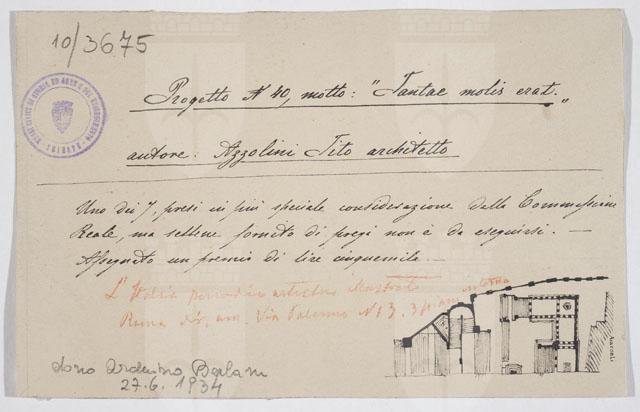 10/3675
Progetto N 40, motto: "Tantae molis erat."
autore: Azzolini Tito architetto
Uno dei 7, presi in più speciale considerazione dalla Commissione
Reale, ma sebbene fornito di pregi non è da eseguirsi. —
Assegnato un premio di lire cinquemila —
L'Italia periodico artistico illustrato
Roma Via Palermo N 13. 3 piano interno
dono
27.6.1934